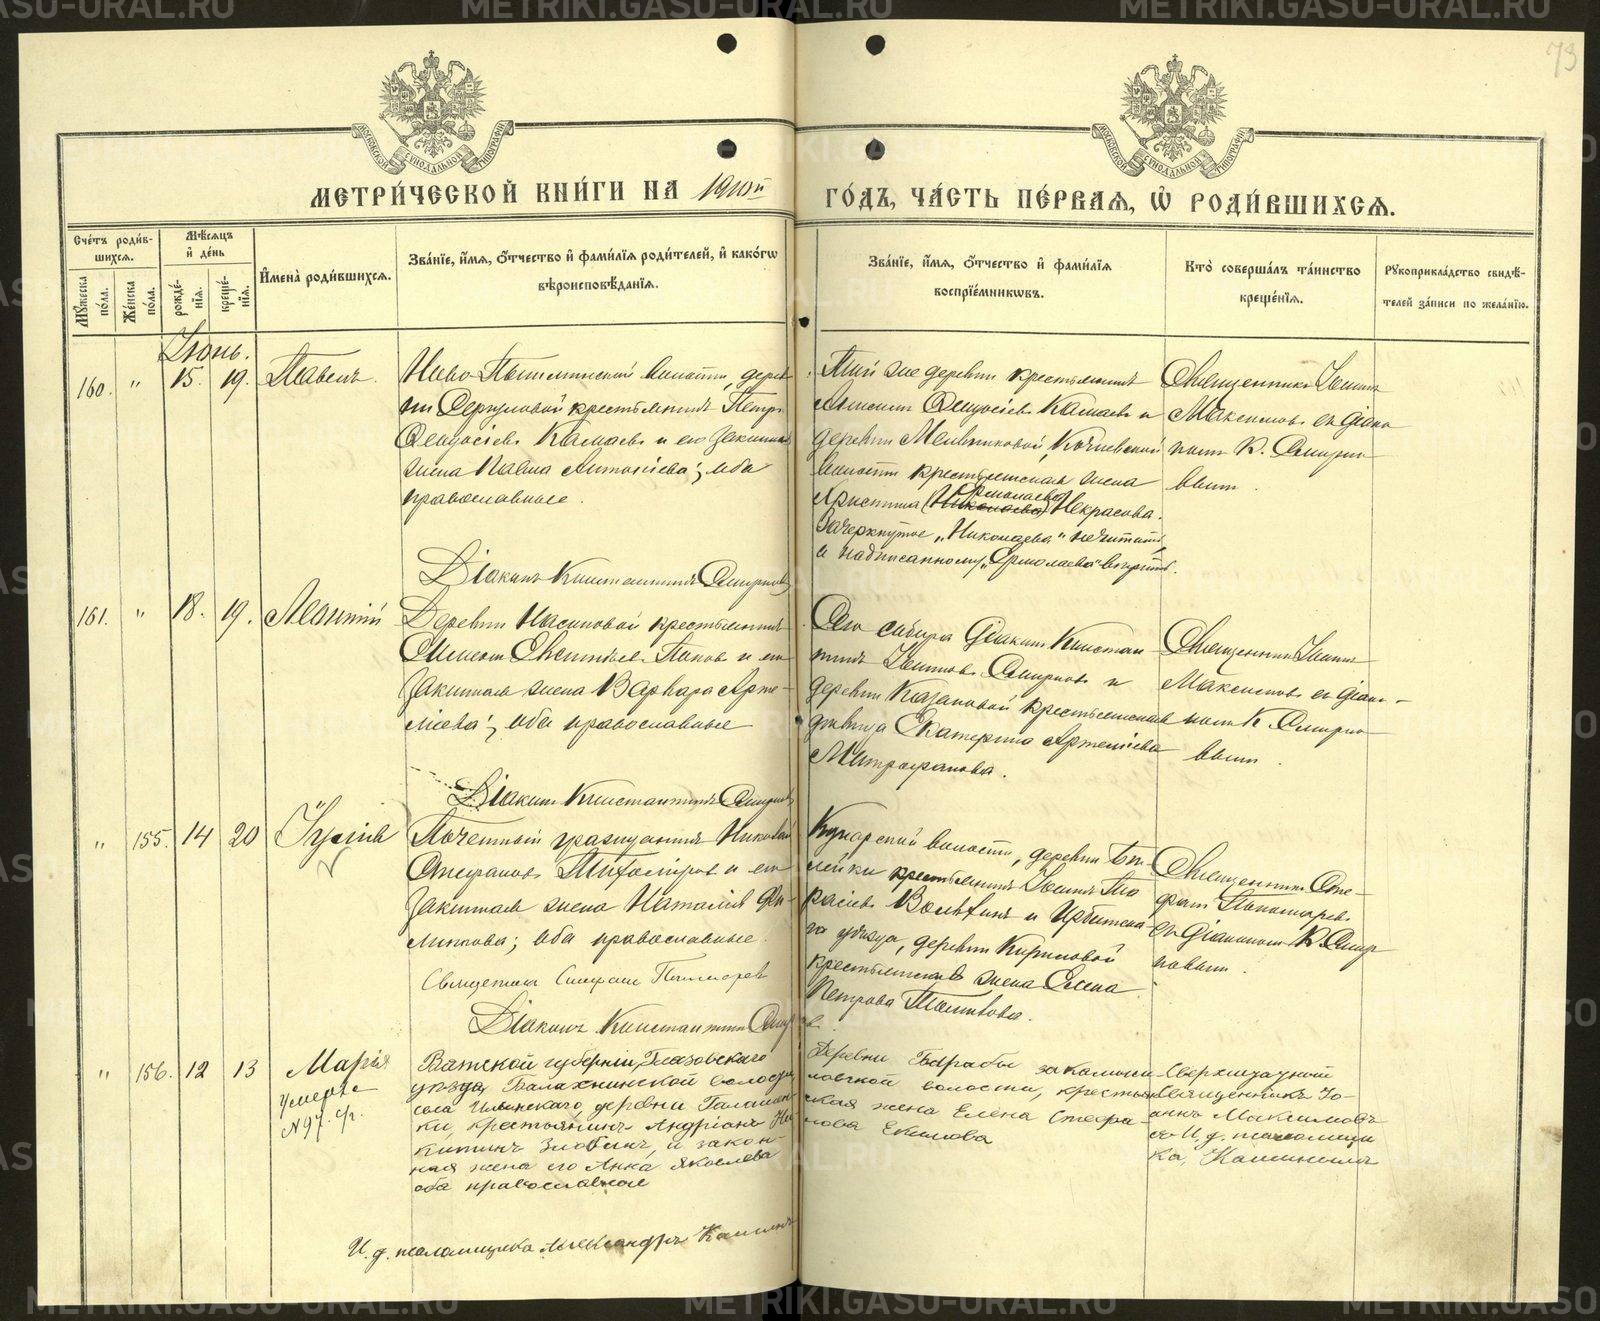 METRIKI.GASU-URAL.RU
73
МЕТРИ́ЧЕСКОЙ КНИ́ГИ НА 1910й ГО́ДЪ, ЧА́СТЬ ПЕ́РВАЯ, Ѽ РОДИ́ВШИХСЯ.
Сче́тъ роди́вшихся.
Мꙋжеска по́ла.
Же́нска по́ла.
Мѣ́сяцъ и҆ де́нь
рожде́нїя.
креще́нїя.
И҆мена̀ роди́вшихся.
Зва́нїе, и҆́мя, о҆́тчество и҆ фами́лїя роди́телей, и҆ како́гѡ
вѣроисповѣ́данїя.
Зва́нїе, и҆́мя, о҆́тчество и҆ фами́лїя
воспрїе́мникѡвъ.
Кто̀ соверша́лъ та́инство
креще́нїя.
Рꙋкоприкла́дство свидѣ́телей за́писи по жела́нїю.
Іюнь.
160. " 15. 19. Павелъ.
Ново-Пышминской волости, дерев-
ни Сергуловой крестьянинъ Петръ
Ѳеодосіевъ Камаевъ и его законная
жена Павла Антоніева; оба
православные.
Той же деревни крестьянинъ
Ѳеодосіевъ Камаевъ и
деревни Мельниковой,
волости крестьянская жена
Христина (Николаева) Ермолаева Некрасова.
Зачеркнутое "Николаева" не читать,
а надписанному "Ермолаева" верить.
Священникъ Іоаннъ
Максимовъ съ діако-
номъ К. Смирно-
вымъ.
Діаконъ Константинъ Смирновъ
161. " 18. 19. Леонтій
Деревни крестьянинъ
Симеонъ Поповъ и его
законная жена Варвара Арте-
міева; оба православные
Сего собора діаконъ Констан-
тинъ Смирновъ и
деревни Казаковой крестьянская
дѣвица Екатерина Артеміева
Митрофанова.
Священникъ Іоаннъ
Максимовъ съ діако-
номъ К. Смирно-
вымъ.
Діаконъ Константинъ Смирновъ
" 155. 14 20
Почетный гражданинъ Николай
Стефановъ Тихоміровъ и его
законная жена Наталія Фи-
липпова; оба православные.
Кунарской волости, деревни
крестьянинъ Іоаннъ
и Ирбитска-
го уѣзда, деревни Кириловой
крестьянская жена Елена
Петрова
Священникъ Сте-
фанъ Пономаревъ
съ діакономъ К. Смир-
новымъ.
Священникъ Стефанъ Пономаревъ
Діаконъ Константинъ Смирновъ
" 156. 12 13 Марія
умерла
N 97.
Вятской губерніи, Глазовскаго
уѣзда, Балахнинской волости,
села Ильинскаго, деревни
крестьянинъ Андріанъ Ни-
китинъ Злобинъ, и закон-
ная жена его Анна Яковлева
оба православные
Деревни Барабы
волости, крестьян-
ская жена Елена Стефа-
нова Екимова
Сверхштатный
священникъ Іо-
аннъ Максимовъ
съ И. д. псаломщи-
ка,
И. д. псаломщика Александръ